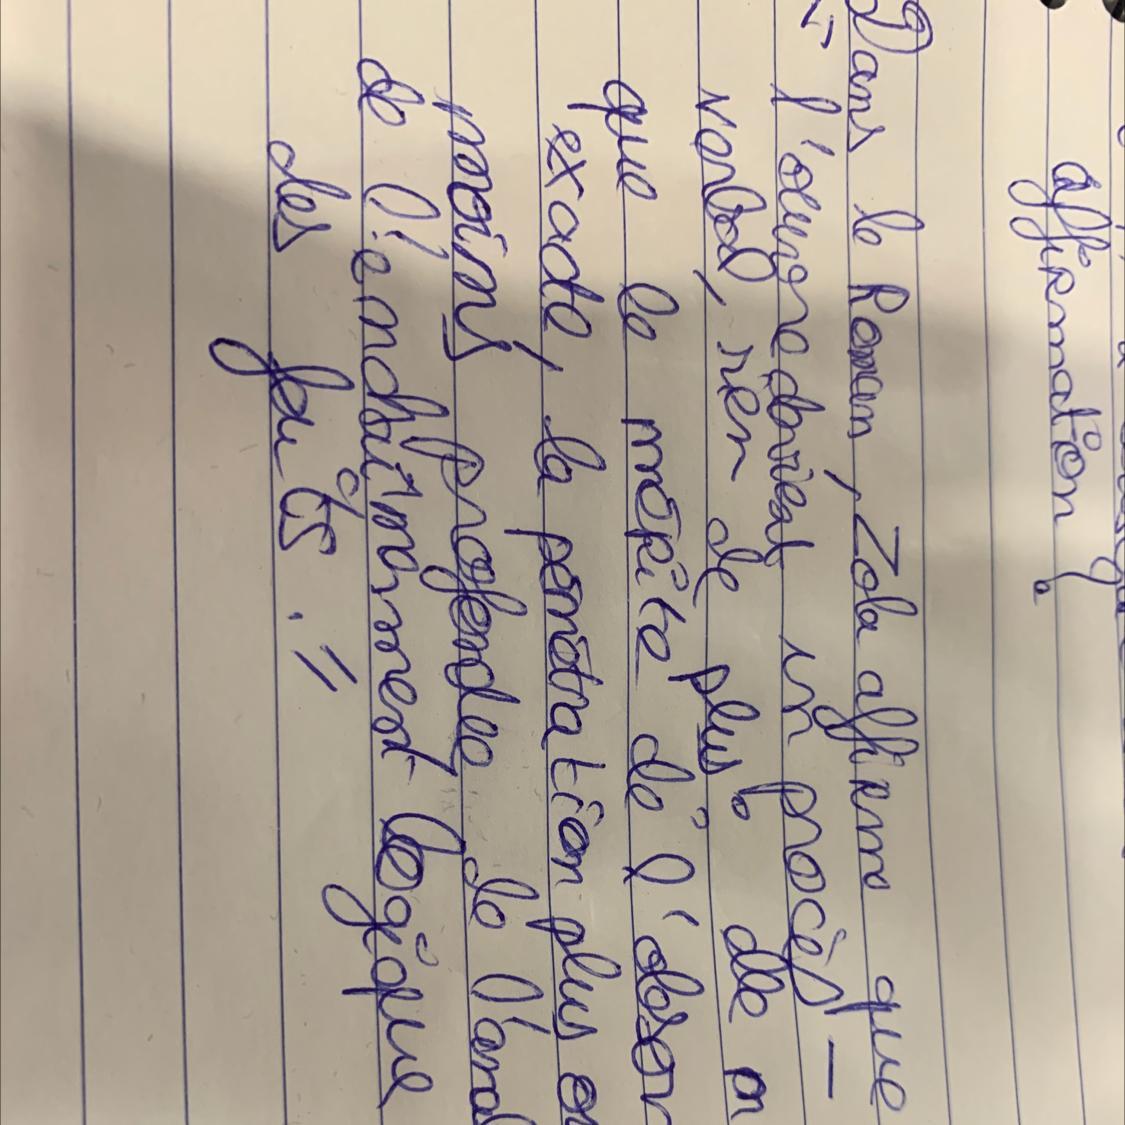 affirmation.
Dans le Roman, Zola affirme que
"l'oeuvre devient un procès-
verbal, rien de plus; elle n
que le mérite de l'obser
exacte, la pénétration plus ou
moins profonde de l'anal
de l'enchaînement logique
des faits."